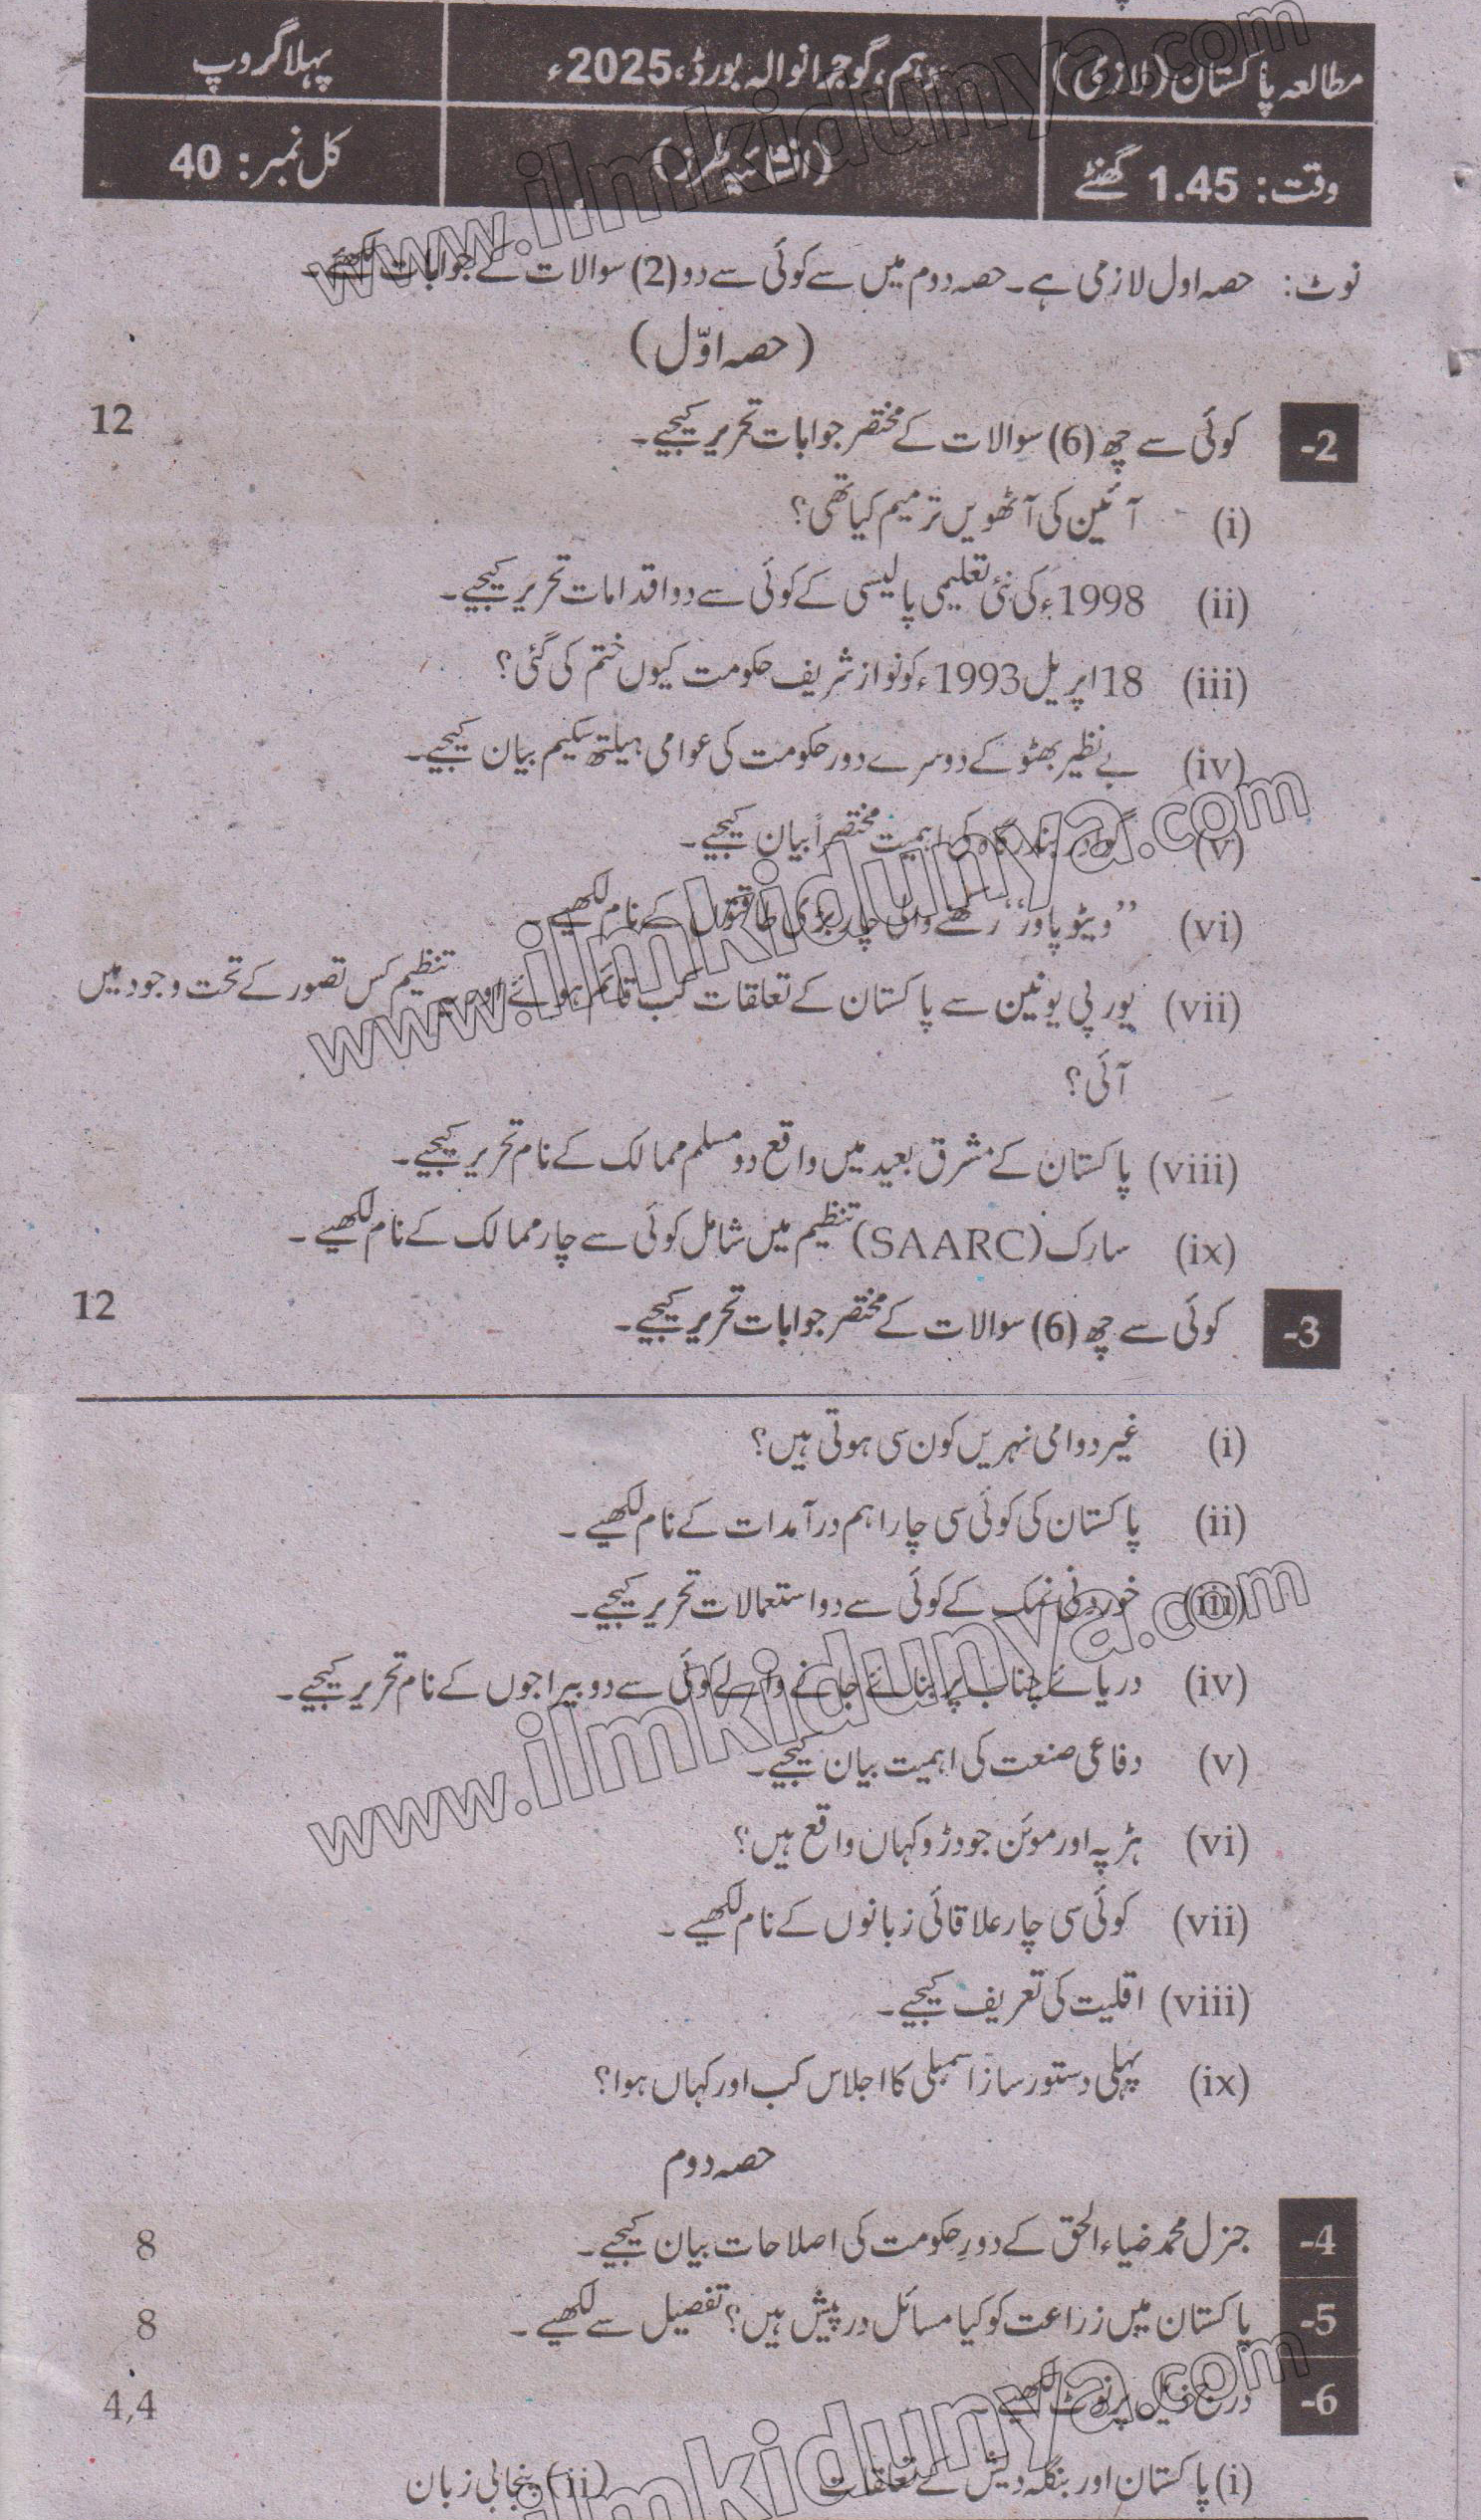 مطالعہ پاکستان (لازمی) دہم، گوجرانوالہ بورڈ، 2025ء پہلا گروپ
وقت: 1.45 گھنٹے (انشائیہ طرز) کل نمبر: 40
نوٹ: حصہ اول لازمی ہے۔ حصہ دوم میں سے کوئی سے دو (2) سوالات کے جوابات لکھیے۔
(حصہ اوّل)
2- کوئی سے چھ (6) سوالات کے مختصر جوابات تحریر کیجیے۔ 12
(i) آئین کی آٹھویں ترمیم کیا تھی؟
(ii) 1998ء کی نئی تعلیمی پالیسی کے کوئی سے دو اقدامات تحریر کیجیے۔
(iii) 18 اپریل 1993ء کو نواز شریف حکومت کیوں ختم کی گئی؟
(iv) بے نظیر بھٹو کے دوسرے دور حکومت کی عوامی ہیلتھ سکیم بیان کیجیے۔
(v) گوادر بندرگاہ کی اہمیت مختصراً بیان کیجیے۔
(vi) ’’ویٹو پاور‘‘ رکھنے والی چار بڑی طاقتوں کے نام لکھیے۔
(vii) یورپی یونین سے پاکستان کے تعلقات کب قائم ہوئے اور یہ تنظیم کس تصور کے تحت وجود میں
آئی؟
(viii) پاکستان کے مشرق بعید میں واقع دو مسلم ممالک کے نام تحریر کیجیے۔
(ix) سارک (SAARC) تنظیم میں شامل کوئی سے چار ممالک کے نام لکھیے۔
3- کوئی سے چھ (6) سوالات کے مختصر جوابات تحریر کیجیے۔ 12
(i) غیر دوامی نہریں کون سی ہوتی ہیں؟
(ii) پاکستان کی کوئی سی چار اہم درآمدات کے نام لکھیے۔
(iii) خوردنی نمک کے کوئی سے دو استعمالات تحریر کیجیے۔
(iv) دریائے چناب پر بنائے جانے والے کوئی سے دو بیراجوں کے نام تحریر کیجیے۔
(v) دفاعی صنعت کی اہمیت بیان کیجیے۔
(vi) ہڑپہ اور موئن جودڑو کہاں واقع ہیں؟
(vii) کوئی سی چار علاقائی زبانوں کے نام لکھیے۔
(viii) اقلیت کی تعریف کیجیے۔
(ix) پہلی دستور ساز اسمبلی کا اجلاس کب اور کہاں ہوا؟
حصہ دوم
4- جنرل محمد ضیاء الحق کے دورِ حکومت کی اصلاحات بیان کیجیے۔ 8
5- پاکستان میں زراعت کو کیا مسائل درپیش ہیں؟ تفصیل سے لکھیے۔ 8
6- درج ذیل پر نوٹ لکھیے 4,4
(i) پاکستان اور بنگلہ دیش کے تعلقات (ii) پنجابی زبان
www.ilmkidunya.com
www.ilmkidunya.com
www.ilmkidunya.com
ilmkidunya.com